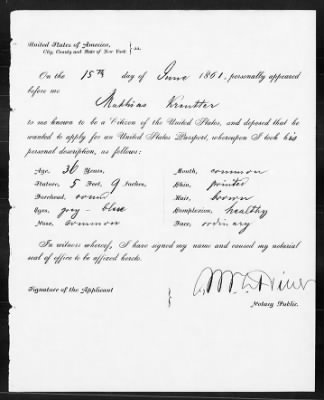 United States of America,
City, County and State of New York } ss.
On the 15th day of June 1861, personally appeared
before me
Mathias Kreutter
to me known to be a Citizen of the United States, and deposed that he
wanted to apply for an United States Passport, whereupon I took his
personal description, as follows:
Age, 36 Years,
Stature, 5 Feet, 9 Inches,
Forehead, round
Eyes, grey - blue
Nose, common
Mouth, common
Chin, pointed
Hair, brown
Complexion, healthy
Face, ordinary
In witness whereof, I have signed my name and caused my notarial
seal of office to be affixed hereto.
Signature of the Applicant
Notary Public.